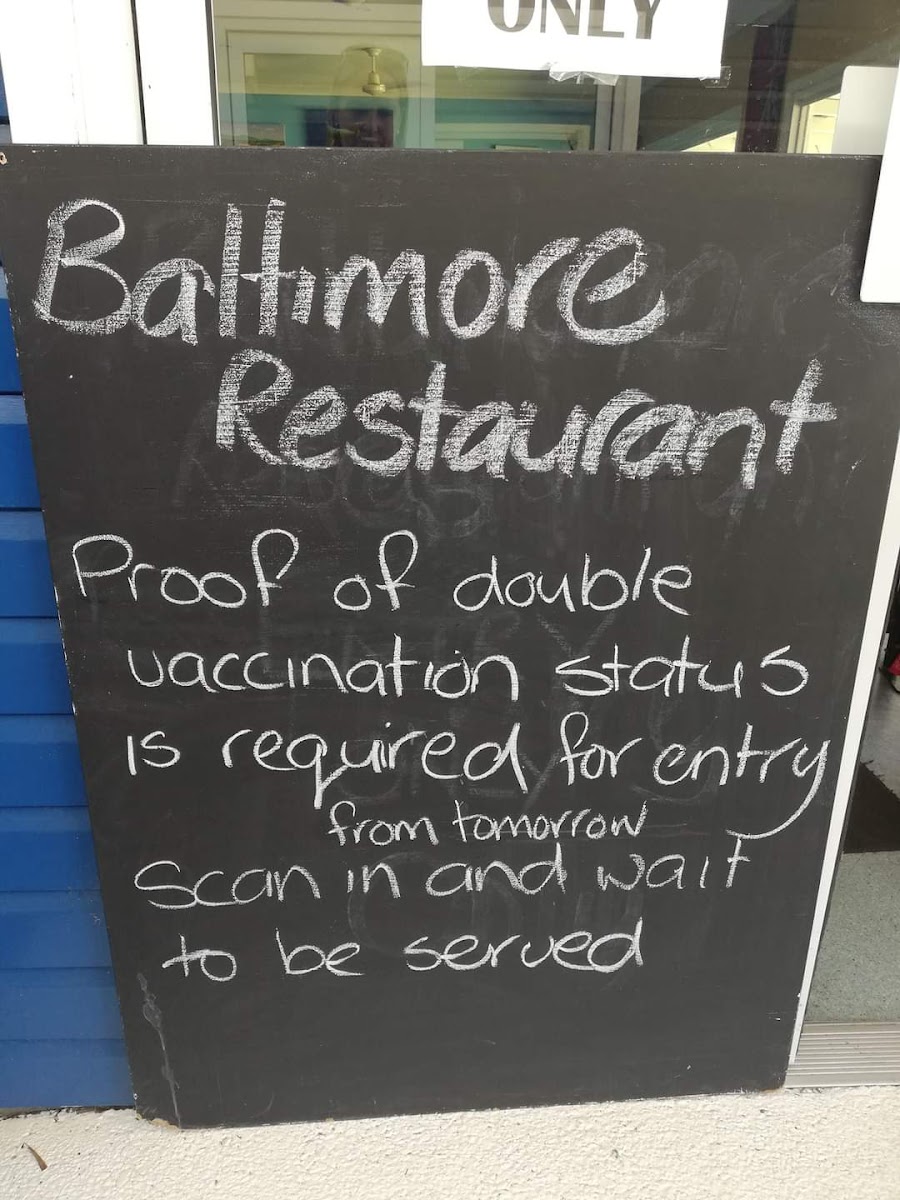 ONLY
Baltimore
Restaurant
Proof of double
vaccination status
is required for entry
from tomorrow
Scan in and wait
to be served